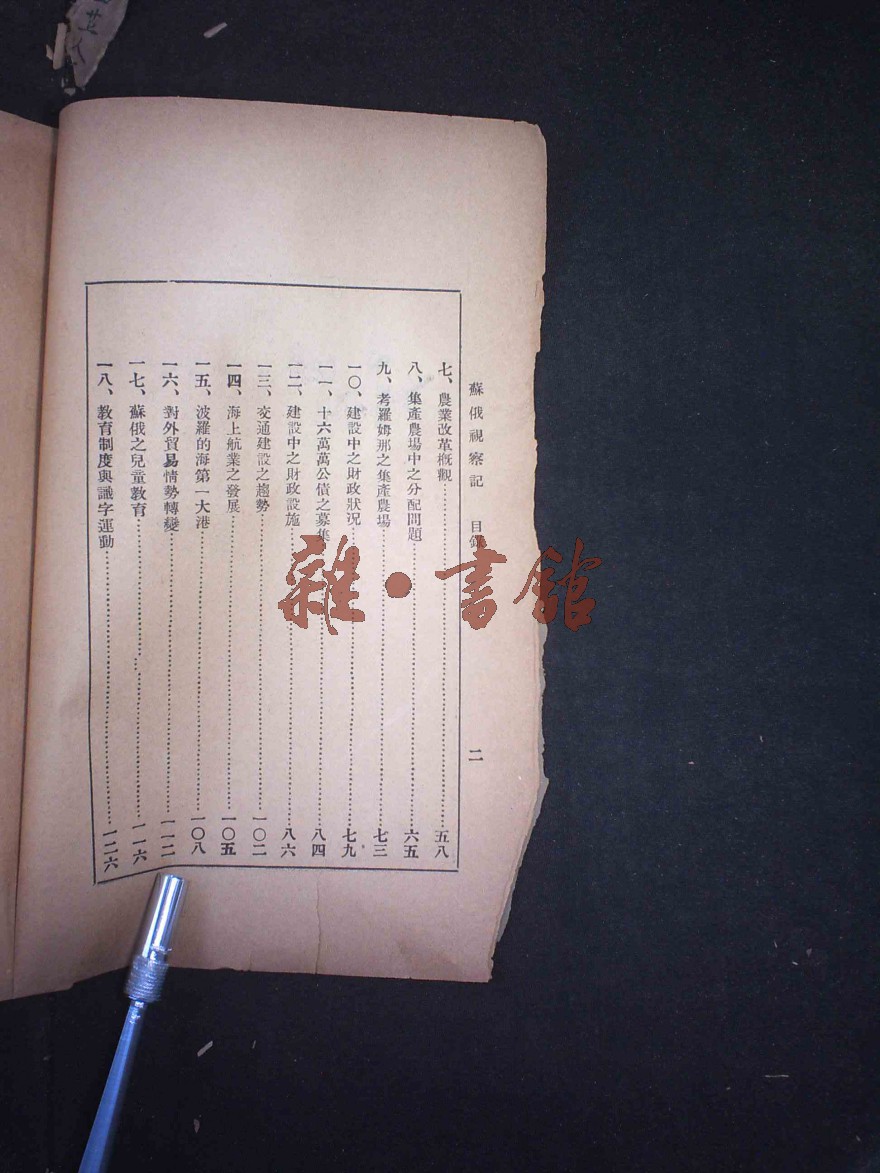 蘇俄視察記 目錄 二
七、農業改革概觀……五八
八、集產農場中之分配問題……六五
九、考羅姆那之集產農場……七三
一〇、建設中之財政狀況……七九
一一、十六萬萬公債之募集……八四
一二、建設中之財政設施……八六
一三、交通建設之趨勢……一〇二
一四、海上航業之發展……一〇五
一五、波羅的海第一大港……一〇八
一六、對外貿易情勢轉變……一一二
一七、蘇俄之兒童教育……一一六
一八、教育制度與識字運動……一二六
雜·書館